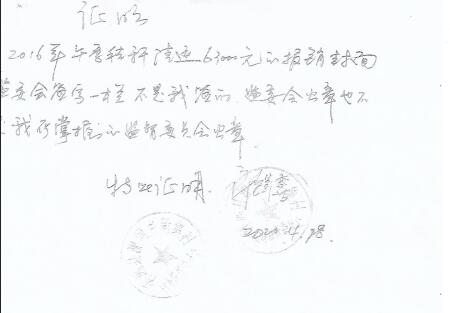 证明
2016年午季秸秆清运63000元的报销封面
监委会签字一栏不是我签的,监委会公章也不
是我所掌握的监督委员会公章.
特此证明.
2020.4.28.